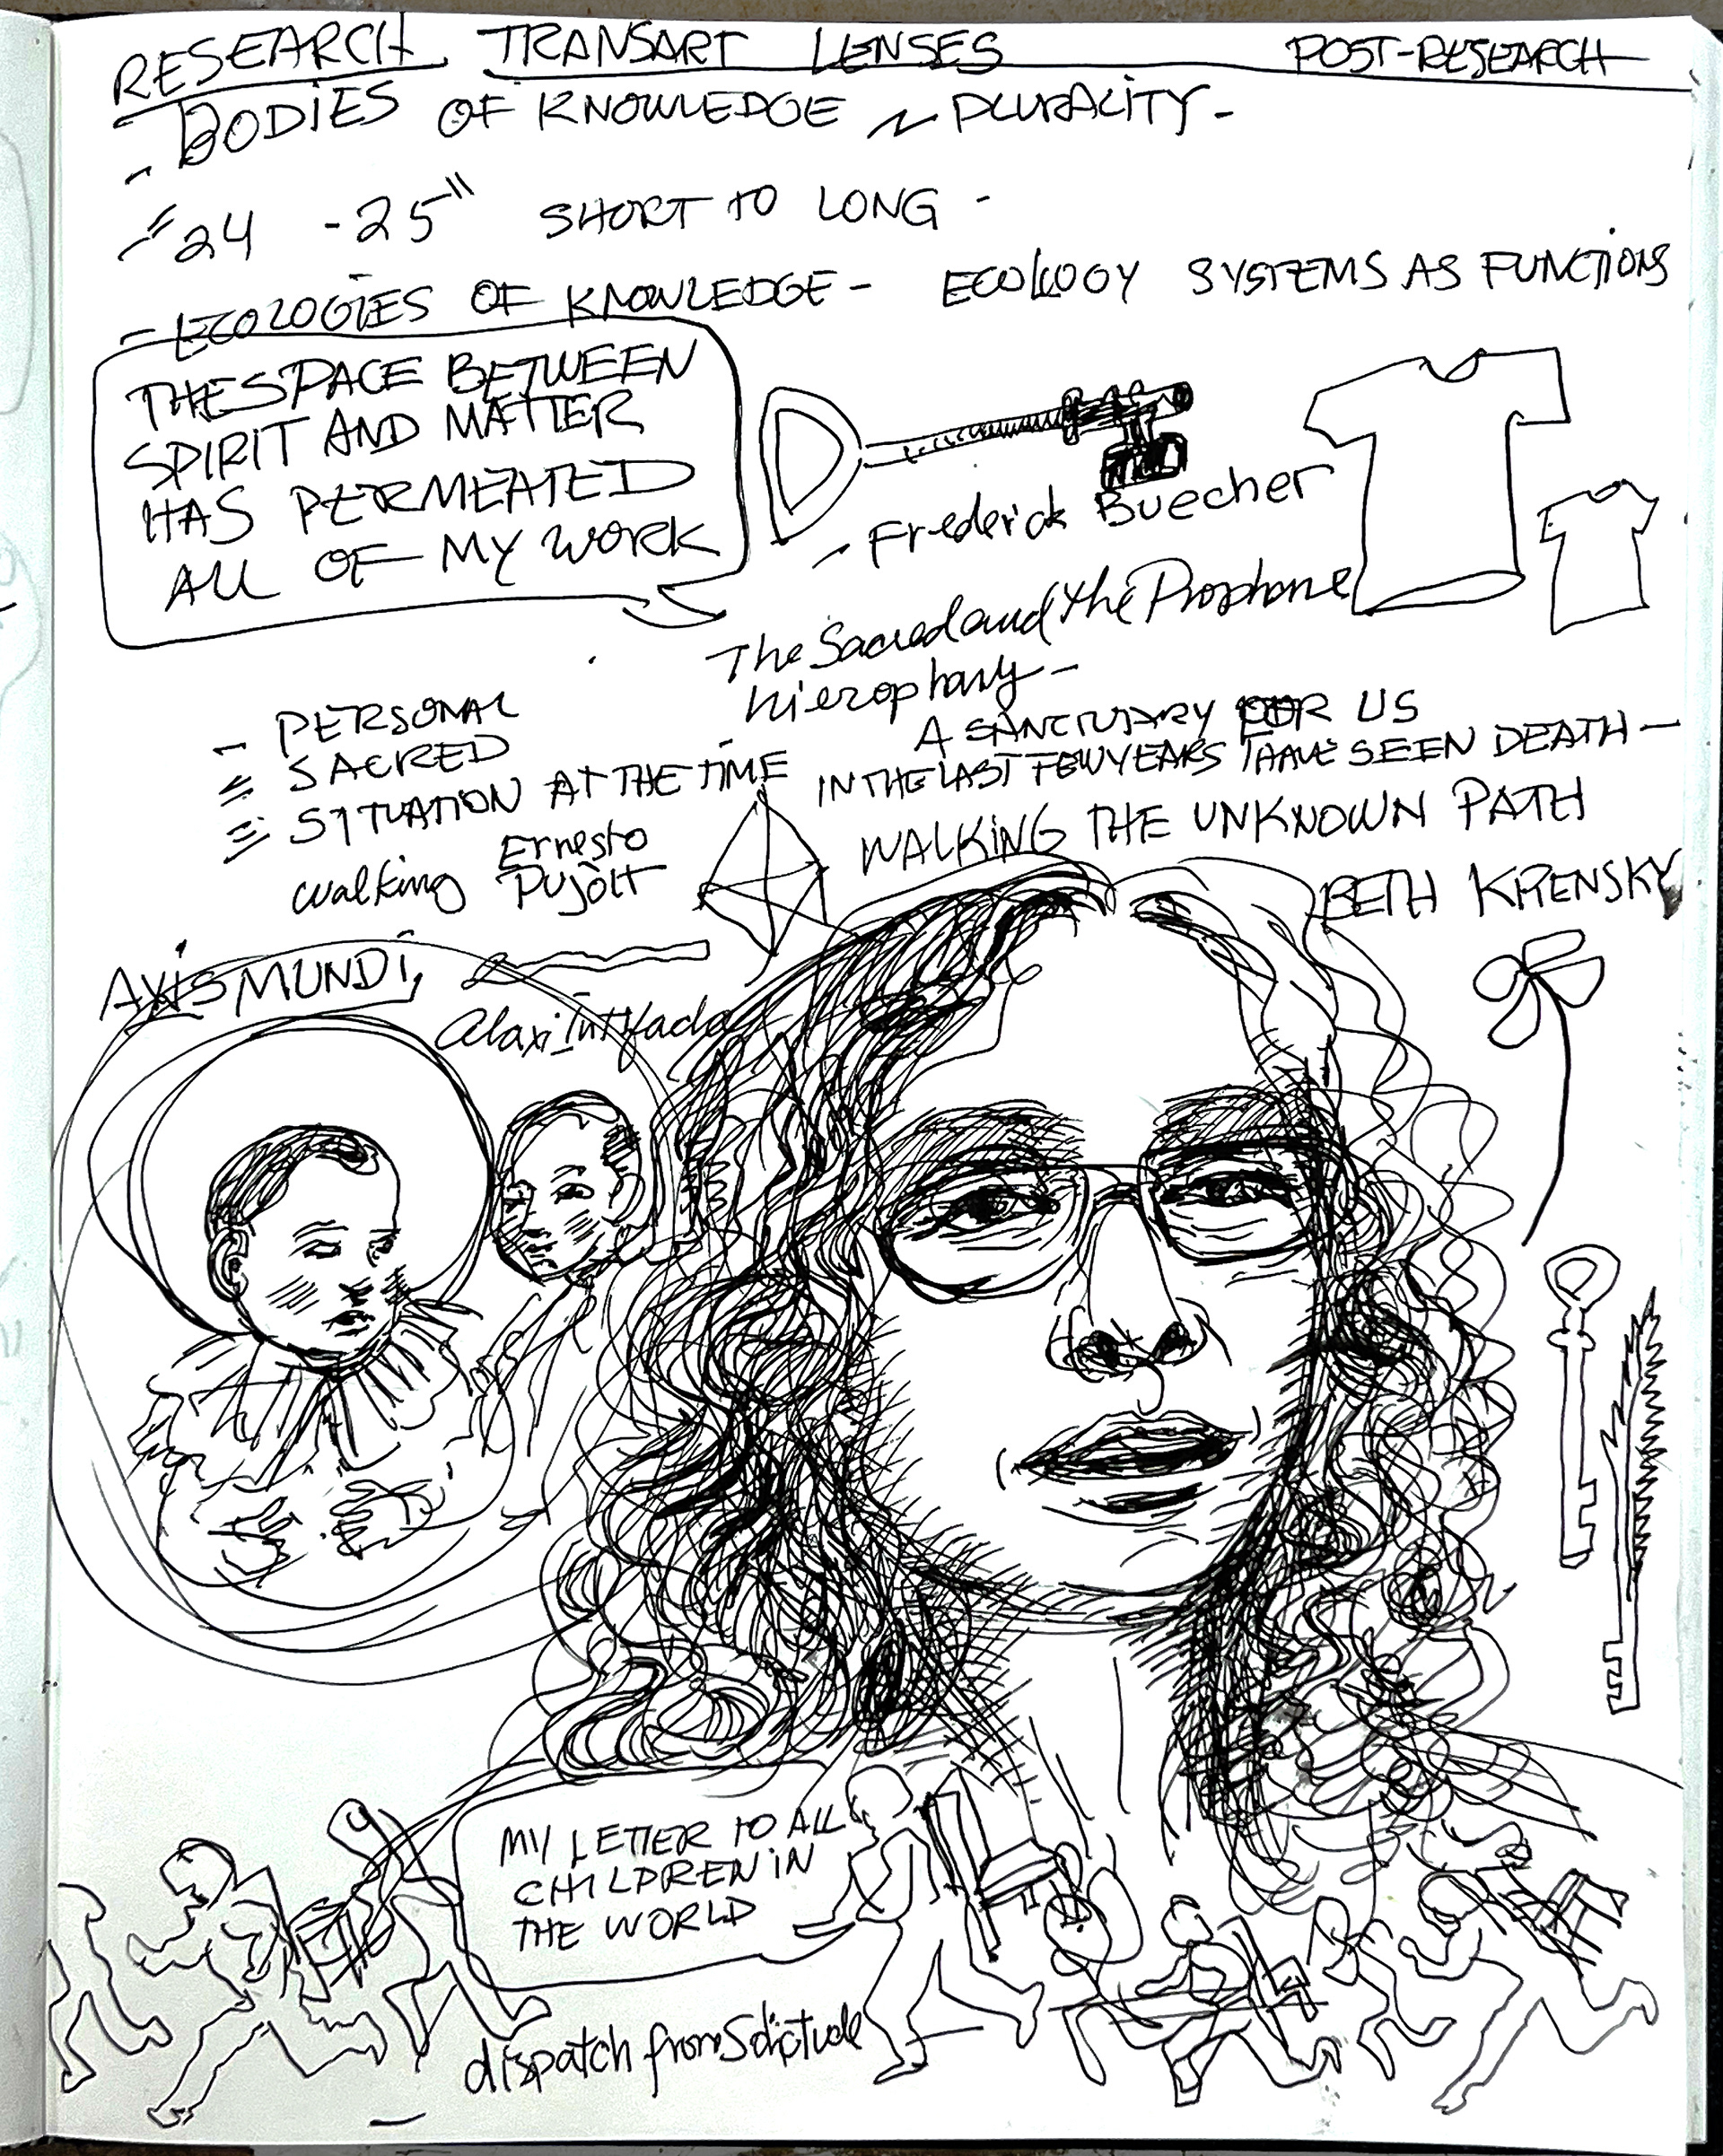 RESEARCH TRANSART LENSES POST-RESEARCH
- BODIES OF KNOWLEDGE ~ PLURALITY -
"24 - 25" SHORT TO LONG -
- ECOLOGIES OF KNOWLEDGE - ECOLOGY SYSTEMS AS FUNCTIONS
THE SPACE BETWEEN
SPIRIT AND MATTER
HAS PERMEATED
ALL OF MY WORK
- Frederick Buecher
The Sacred and the Prophane
hierophany -
- PERSONAL
= SACRED
≡ SITUATION AT THE TIME
walking Ernesto
Pujolt
A SANCTUARY FOR US
IN THE LAST FEW YEARS I HAVE SEEN DEATH -
WALKING THE UNKNOWN PATH
BETH KRENSKY
AXIS MUNDI,
Intifada
MY LETTER TO ALL
CHILDREN IN
THE WORLD
dispatch from